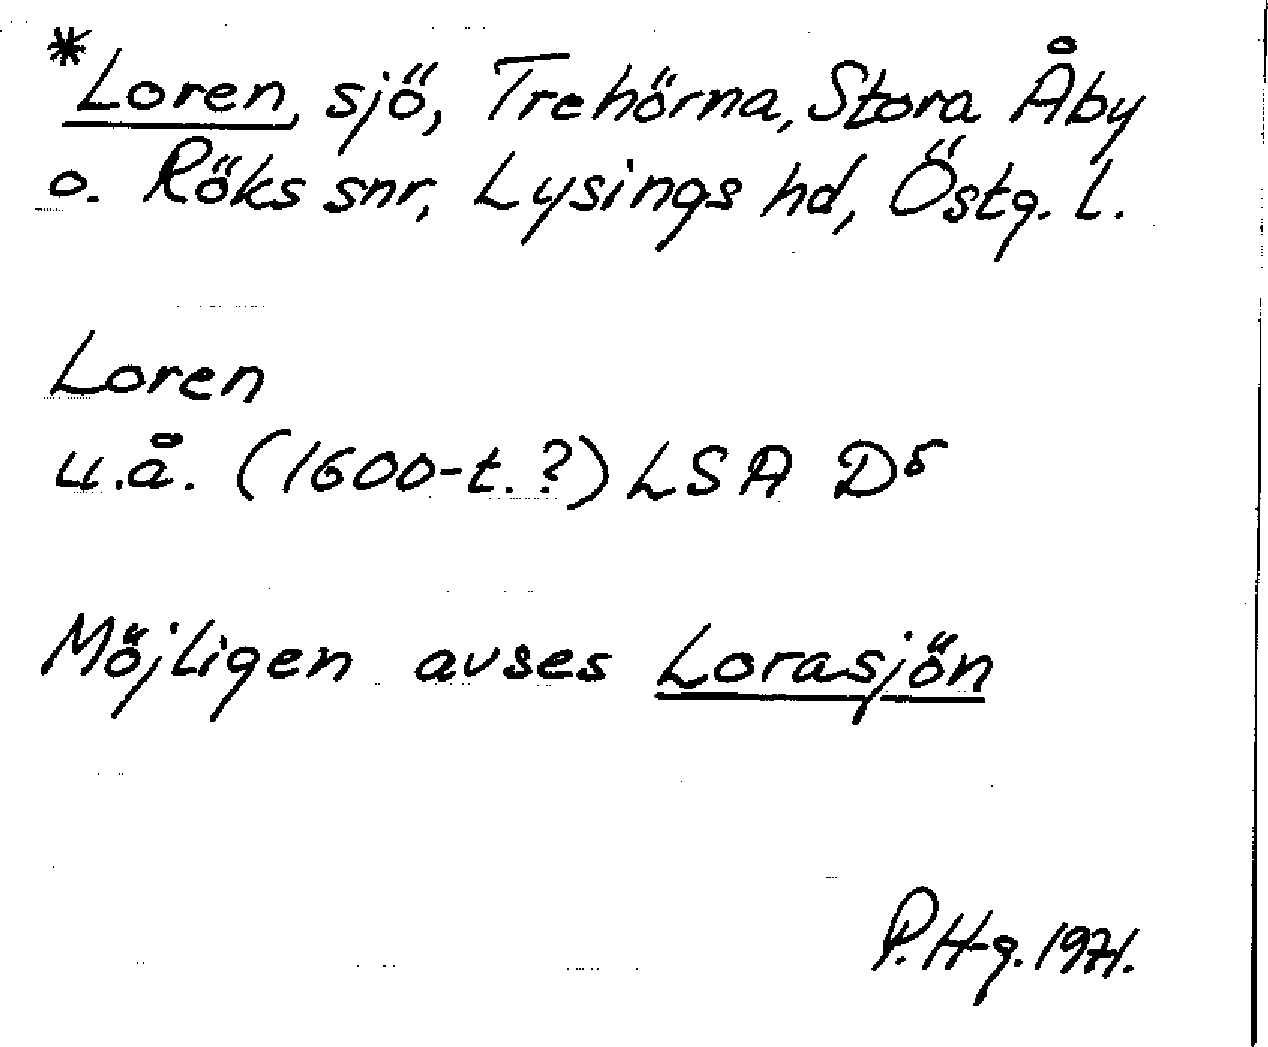 *Loren, sjö, Trehörna, Stora Åby
o. Röks snr, Lysings hd, Östg. l.
Loren
u.å. (1600-t.?) LSA D5
Möjligen avses Lorasjön
P. Hg. 1971.